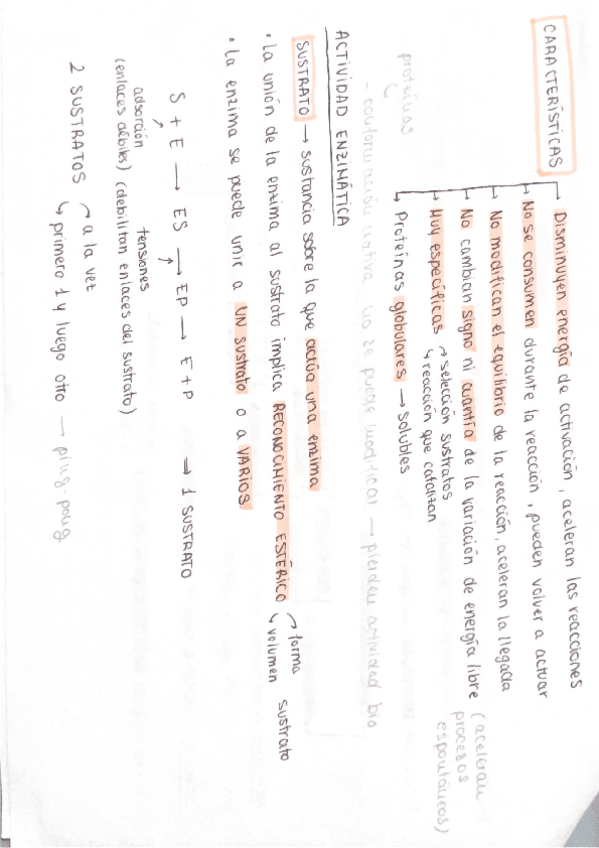 CARACTERÍSTICAS
Disminuyen energía de activación, aceleran las reacciones
No se consumen durante la reacción, pueden volver a actuar
No modifican el equilibrio de la reacción, aceleran la llegada
No cambian signo ni cuantía de la variación de energía libre (aceleran procesos espontáneos)
Muy específicas → selección sustratos
↳ reacción que catalizan
Proteínas globulares → solubles
proteínas
- conformación nativa no se puede modificar → pierden actividad bio
ACTIVIDAD ENZIMÁTICA
SUSTRATO → sustancia sobre la que actúa una enzima
• La unión de la enzima al sustrato implica RECONOCIMIENTO ESTÉRICO → forma
↳ volumen sustrato
• La enzima se puede unir a UN sustrato o a VARIOS.
S + E → ES → EP → E + P → 1 SUSTRATO
adsorción tensiones
(enlaces débiles) (debilitan enlaces del sustrato)
2 SUSTRATOS → a la vez
↳ primero 1 y luego otro → ping-pong